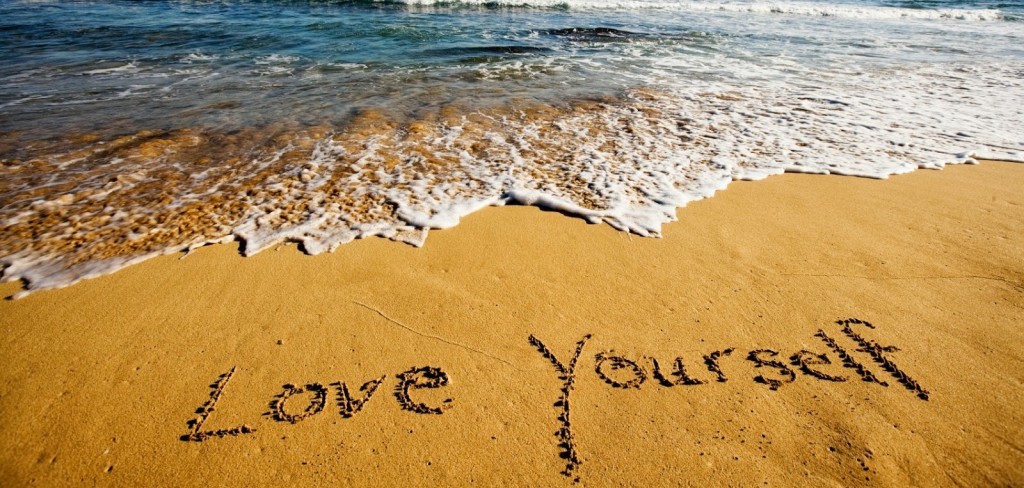 Love Yourself